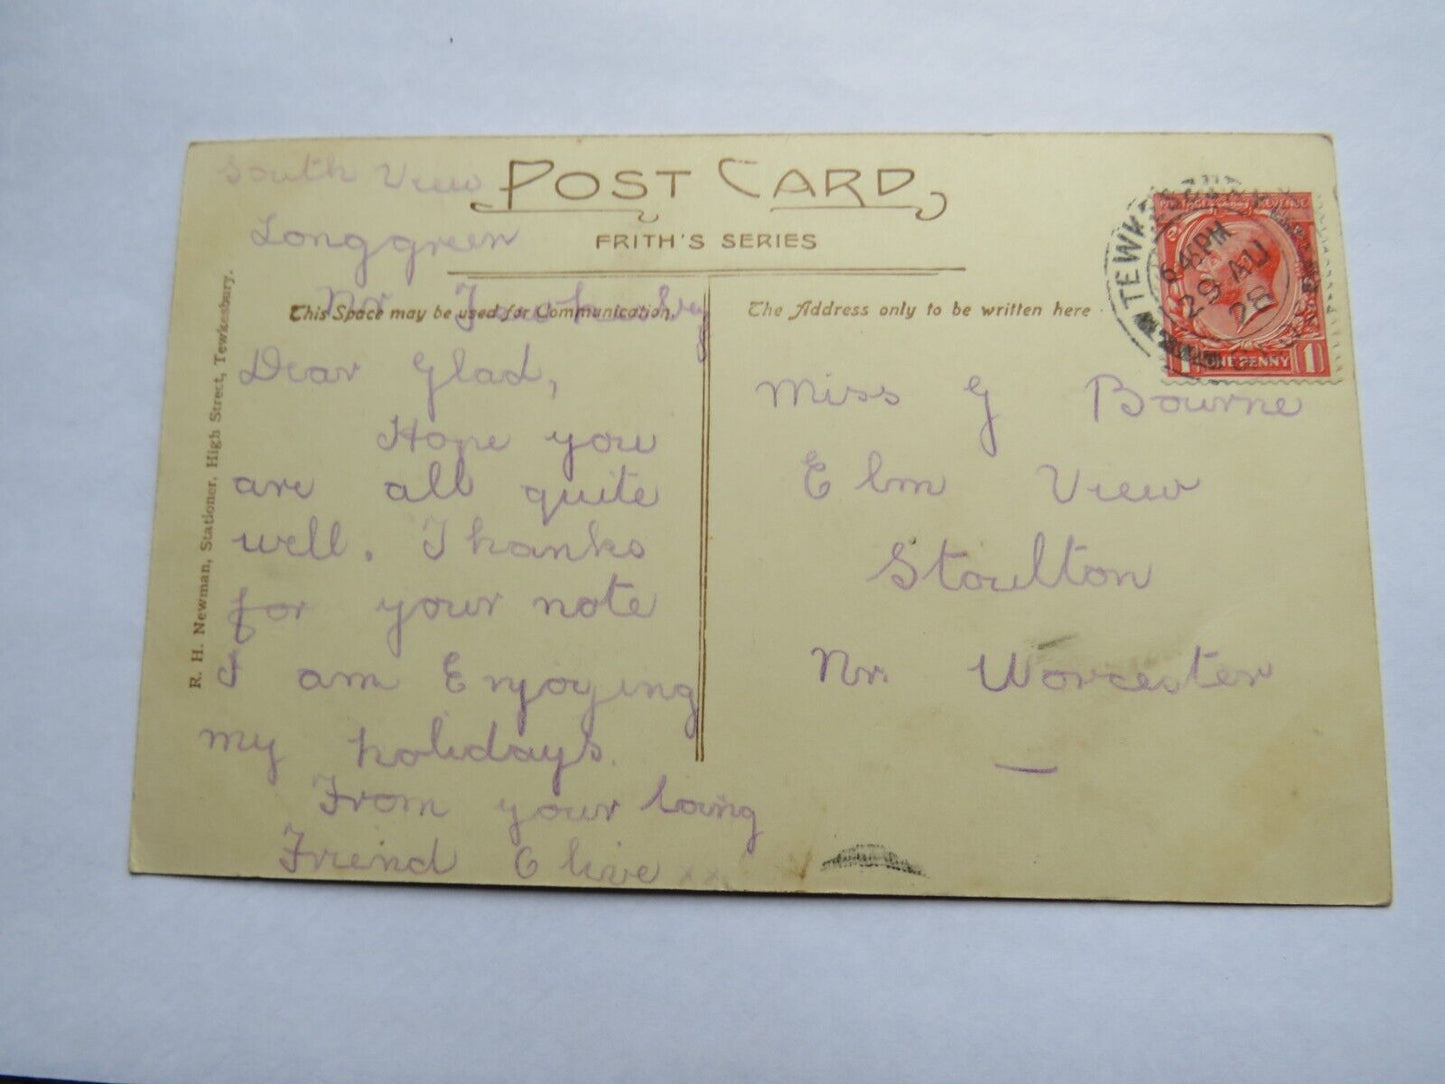 South View
Longgreen
Nr
Dear Glad,
Hope you
are all quite
well. Thanks
for your note
I am Enjoying
my holidays.
From your loving
Friend Olive xx
POST CARD
FRITH'S SERIES
This Space may be used for Communication.
The Address only to be written here
R. H. Newman, Stationer, High Street, Tewkesbury.
Miss G Bourne
Elm View
Stoulton
Nr. Worcester
TEWKESBURY
6 45 PM
29 AU
28
POSTAGE REVENUE
1 ONE PENNY 1